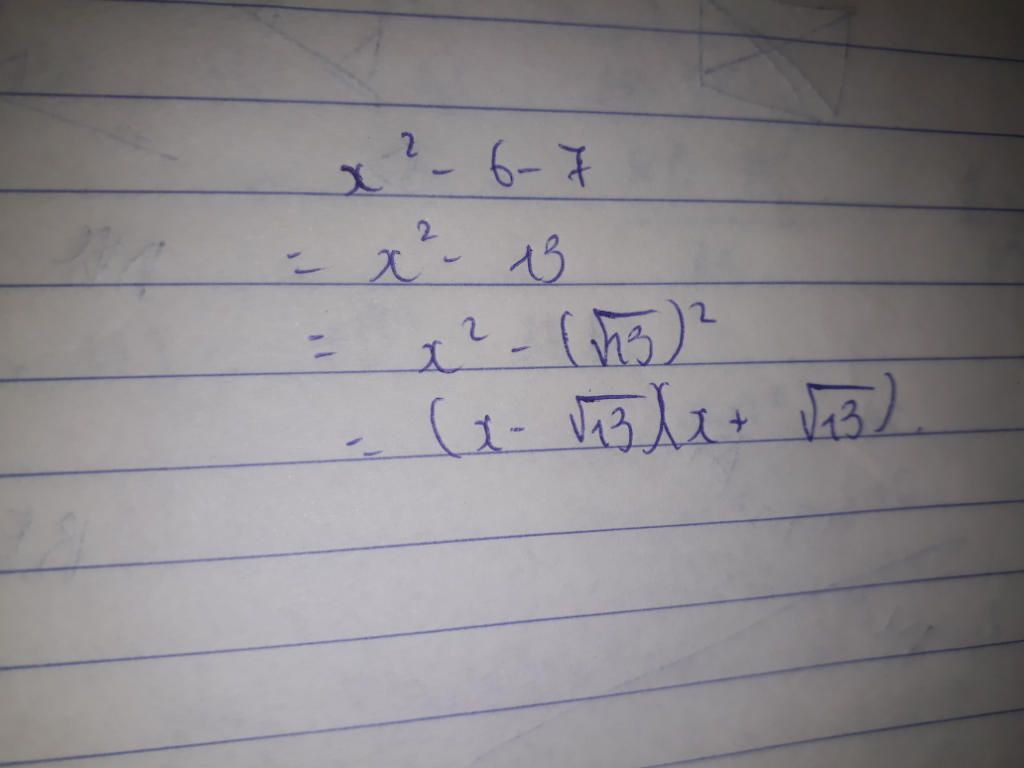 x² - 6 - 7
= x² - 13
= x² - (√13)²
= (x - √13)(x + √13).